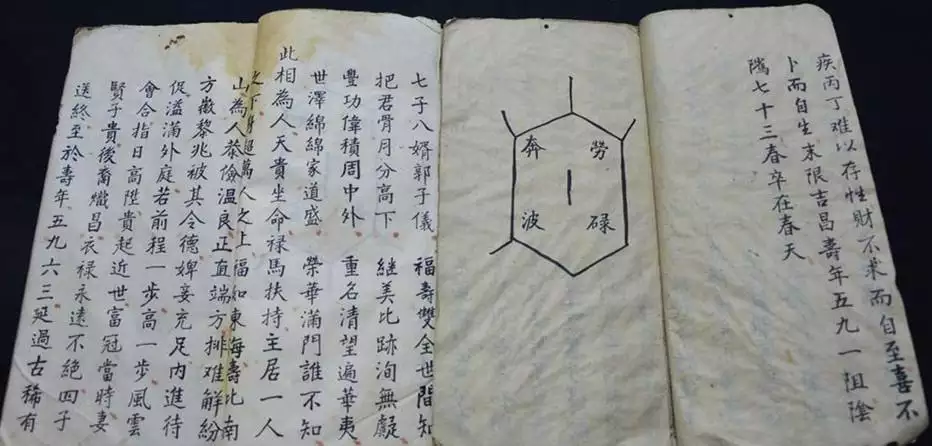 疾丙丁難以存性財不求而自至喜不
卜而自生末限吉昌壽年五九一阻陰
隲七十三春卒在春天
勞碌
奔波
七子八婿郭子儀　福壽雙全世間知
把君骨月分高下　繼美比跡洵無疑
豐功偉積周中外　重名清望遍華夷
世澤綿綿家道盛　榮華滿門誰不知
此相為人天貴坐命祿馬扶持主居一人
之下身超萬人之上福如東海壽比南
山為人恭儉溫良正直端方排難解紛
方徽黎兆被其令德婢妾充足內進待
促溢滿外庭若前程一步高一步風雲
會合指日高陞貴起近世富冠當時妻
賢子貴後裔熾昌衣祿永遠不絕四子
送終至於壽年五九六三延過古稀有